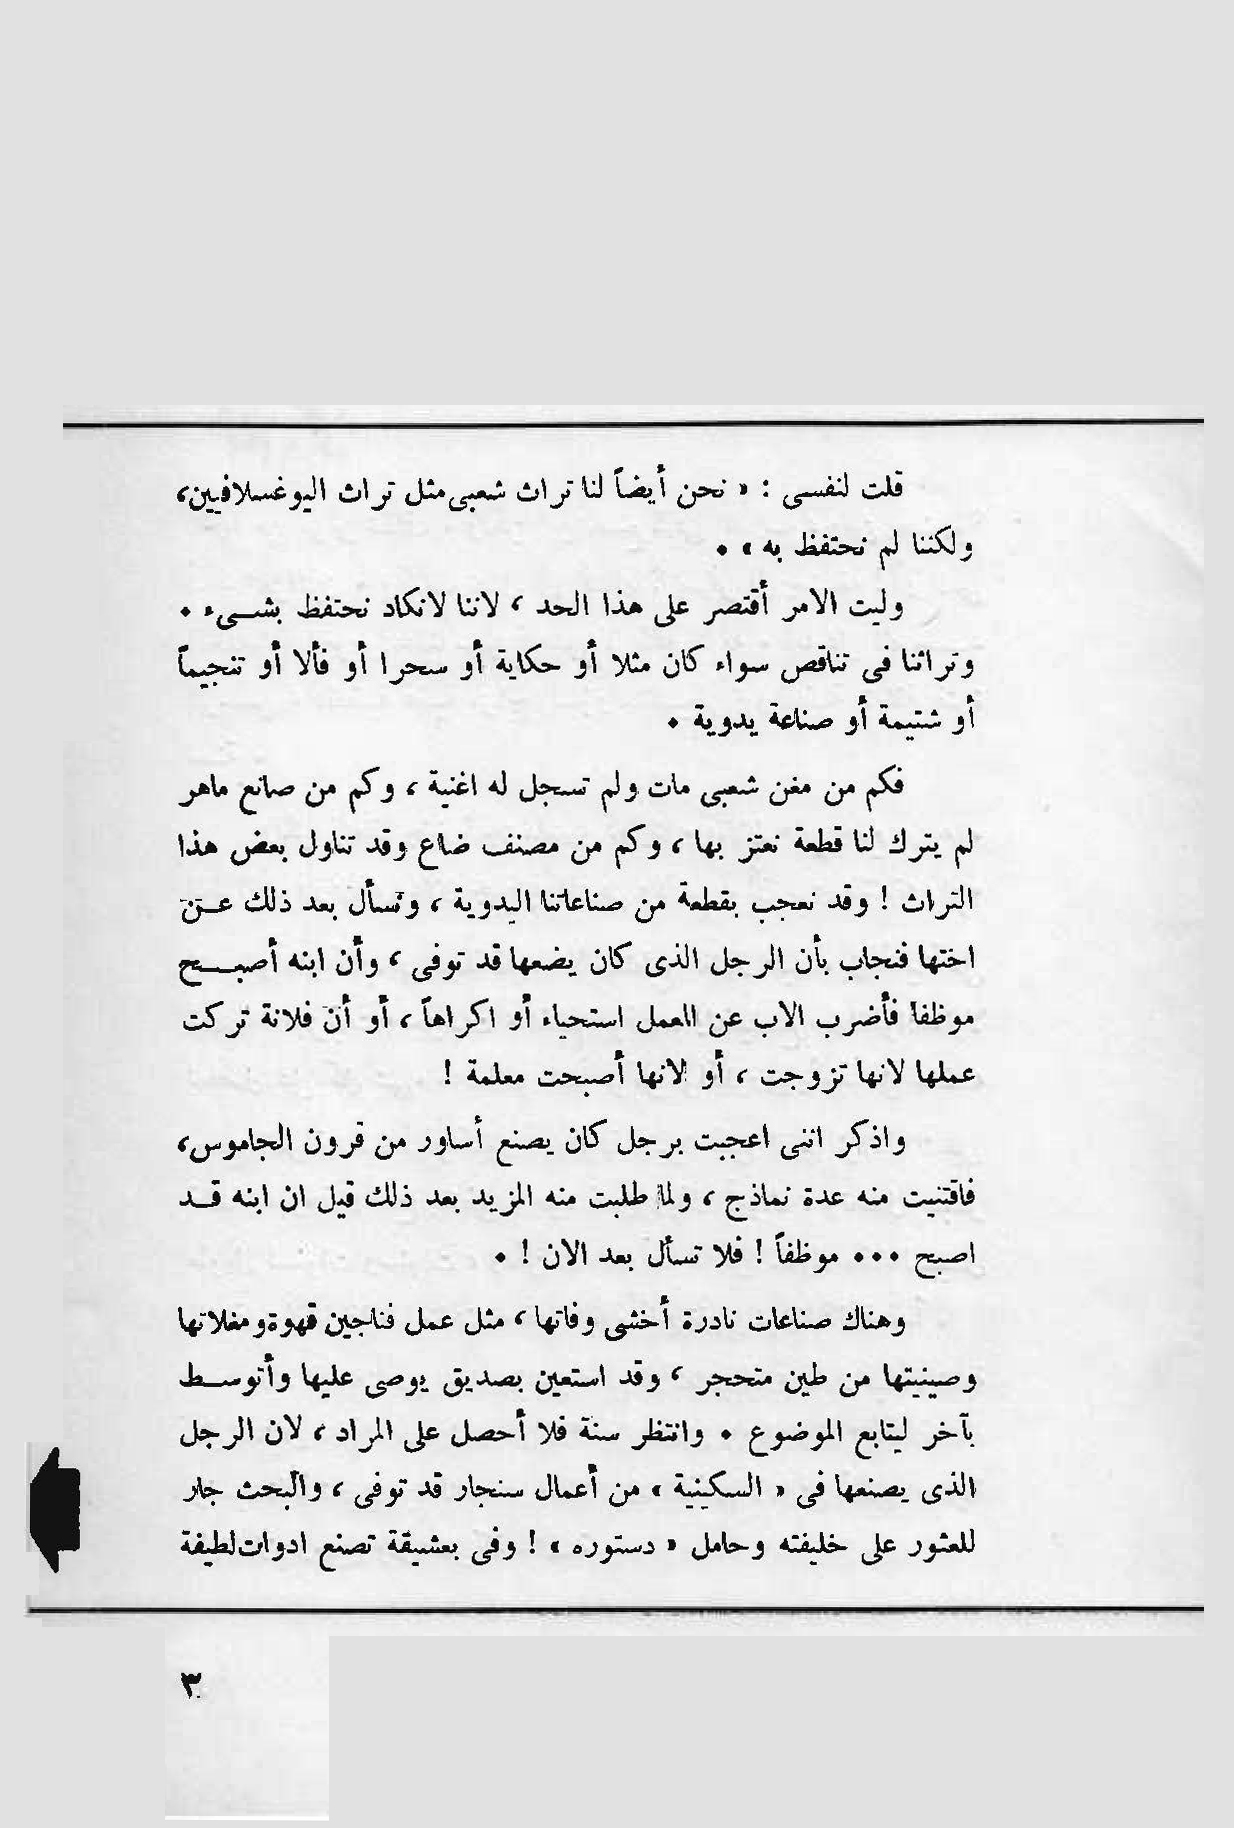 قلت لنفسى : « نحن أيضاً لنا تراث شعبى مثل تراث اليوغسلافيين،
ولكننا لم نحتفظ به » .
وليت الامر أقتصر على هذا الحد ، لاننا لانكاد نحتفظ بشىء .
وتراثنا فى تناقص سواء كان مثلا أو حكاية أو سحرا أو فألا أو تنجيماً
أو شتيمة أو صناعة يدوية .
فكم من مغن شعبى مات ولم تسجل له اغنية ، وكم من صانع ماهر
لم يترك لنا قطعة نعتز بها ، وكم من مصنف ضاع وقد تناول بعض هذا
التراث ! وقد نعجب بقطعة من صناعاتنا اليدوية ، ونسأل بعد ذلك عن
اختها فنجاب بأن الرجل الذى كان يضعها قد توفى ، وأن ابنه أصبح
موظفاً فأضرب الاب عن العمل استحياء أو اكراهاً ، أو أن فلانة تركت
عملها لانها تزوجت ، أو لانها أصبحت معلمة !
واذكر اننى اعجبت برجل كان يصنع أساور من قرون الجاموس،
فاقتنيت منه عدة نماذج ، ولما طلبت منه المزيد بعد ذلك قيل ان ابنه قد
اصبح ... موظفاً ! فلا تسأل بعد الان ! .
وهناك صناعات نادرة أخشى وفاتها ، مثل عمل فناجين قهوة ومغلاتها
وصينيتها من طين متحجر ، وقد استعين بصديق يوصى عليها وأتوسط
بآخر ليتابع الموضوع . وانتظر سنة فلا أحصل على المراد ، لان الرجل
الذى يصنعها فى « السكينية » من أعمال سنجار قد توفى ، والبحث جار
للعثور على خليفته وحامل « دستوره » ! وفى بعشيقة تصنع ادوات لطيفة
٣